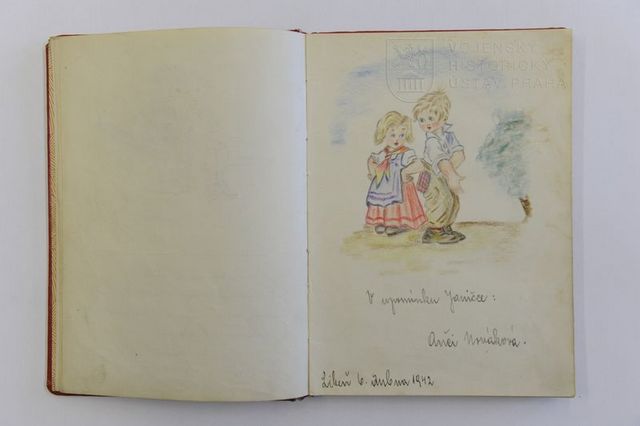 VOJENSKÝ
HISTORICKÝ
ÚSTAV PRAHA
V upomínku Janičce:
Anči Nováková.
Libeň 6. dubna 1942